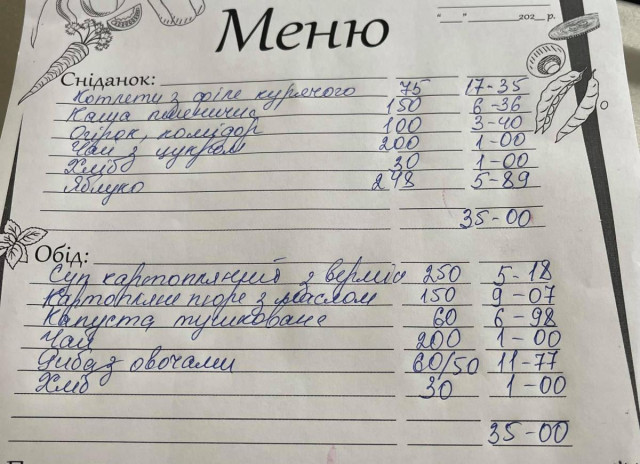 Меню
"__"______202__р.
Сніданок:
Котлети з філе курячого 75 17-35
Каша пшенична 150 6-36
Огірок, помідор 100 3-40
Чай з цукром 200 1-00
Хліб 30 1-00
Яблуко 248 5-89
35-00
Обід:
Суп картопляний з верміш 250 5-18
Картопляне пюре з маслом 150 9-07
Капуста тушкована 60 6-98
Чай 200 1-00
Риба з овочами 60/50 11-77
Хліб 30 1-00
35-00